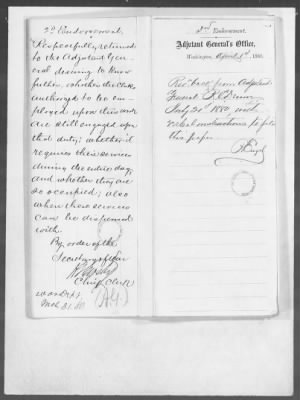 2d Endorsement.
Respectfully returned
to the Adjutant Gen-
eral desiring to know
further, whether the Clerks
authorized to be em-
ployed upon this work
are still engaged upon
that duty; whether it
requires their services
during the entire day,
and whether they are
so occupied; also
when these services
can be dispensed
with.
By order of the
Secretary of War
Chief Clerk
War Dept.
Mch 31. 80
(A.G.)
3rd Endorsement.
Adjutant General's Office,
Washington, April 1st, 1880.
Rec. back from Adjutant
General
July 20th 1880 with
verbal instructions to file
this paper.